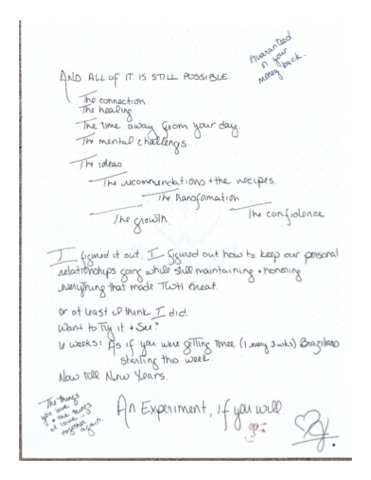 Guaranteed
n your
money back.
AND ALL OF IT IS STILL POSSIBLE.
The connection
The healing
The time away from your day.
The mental challenges
The ideas
The recommendations + the recipes.
The transformation
The growth. The confidence
I figured it out. I figured out how to keep our personal
relationships going while still maintaining + honoring
everything that made TWH great.
or at least I think I did.
Want to Try it + See?
6 weeks: As if you were getting three (1 every 3 wks) Brazilians
starting this week.
Now till New Years.
The things
you love
+ the things
I love
together
again
An Experiment, if you will.